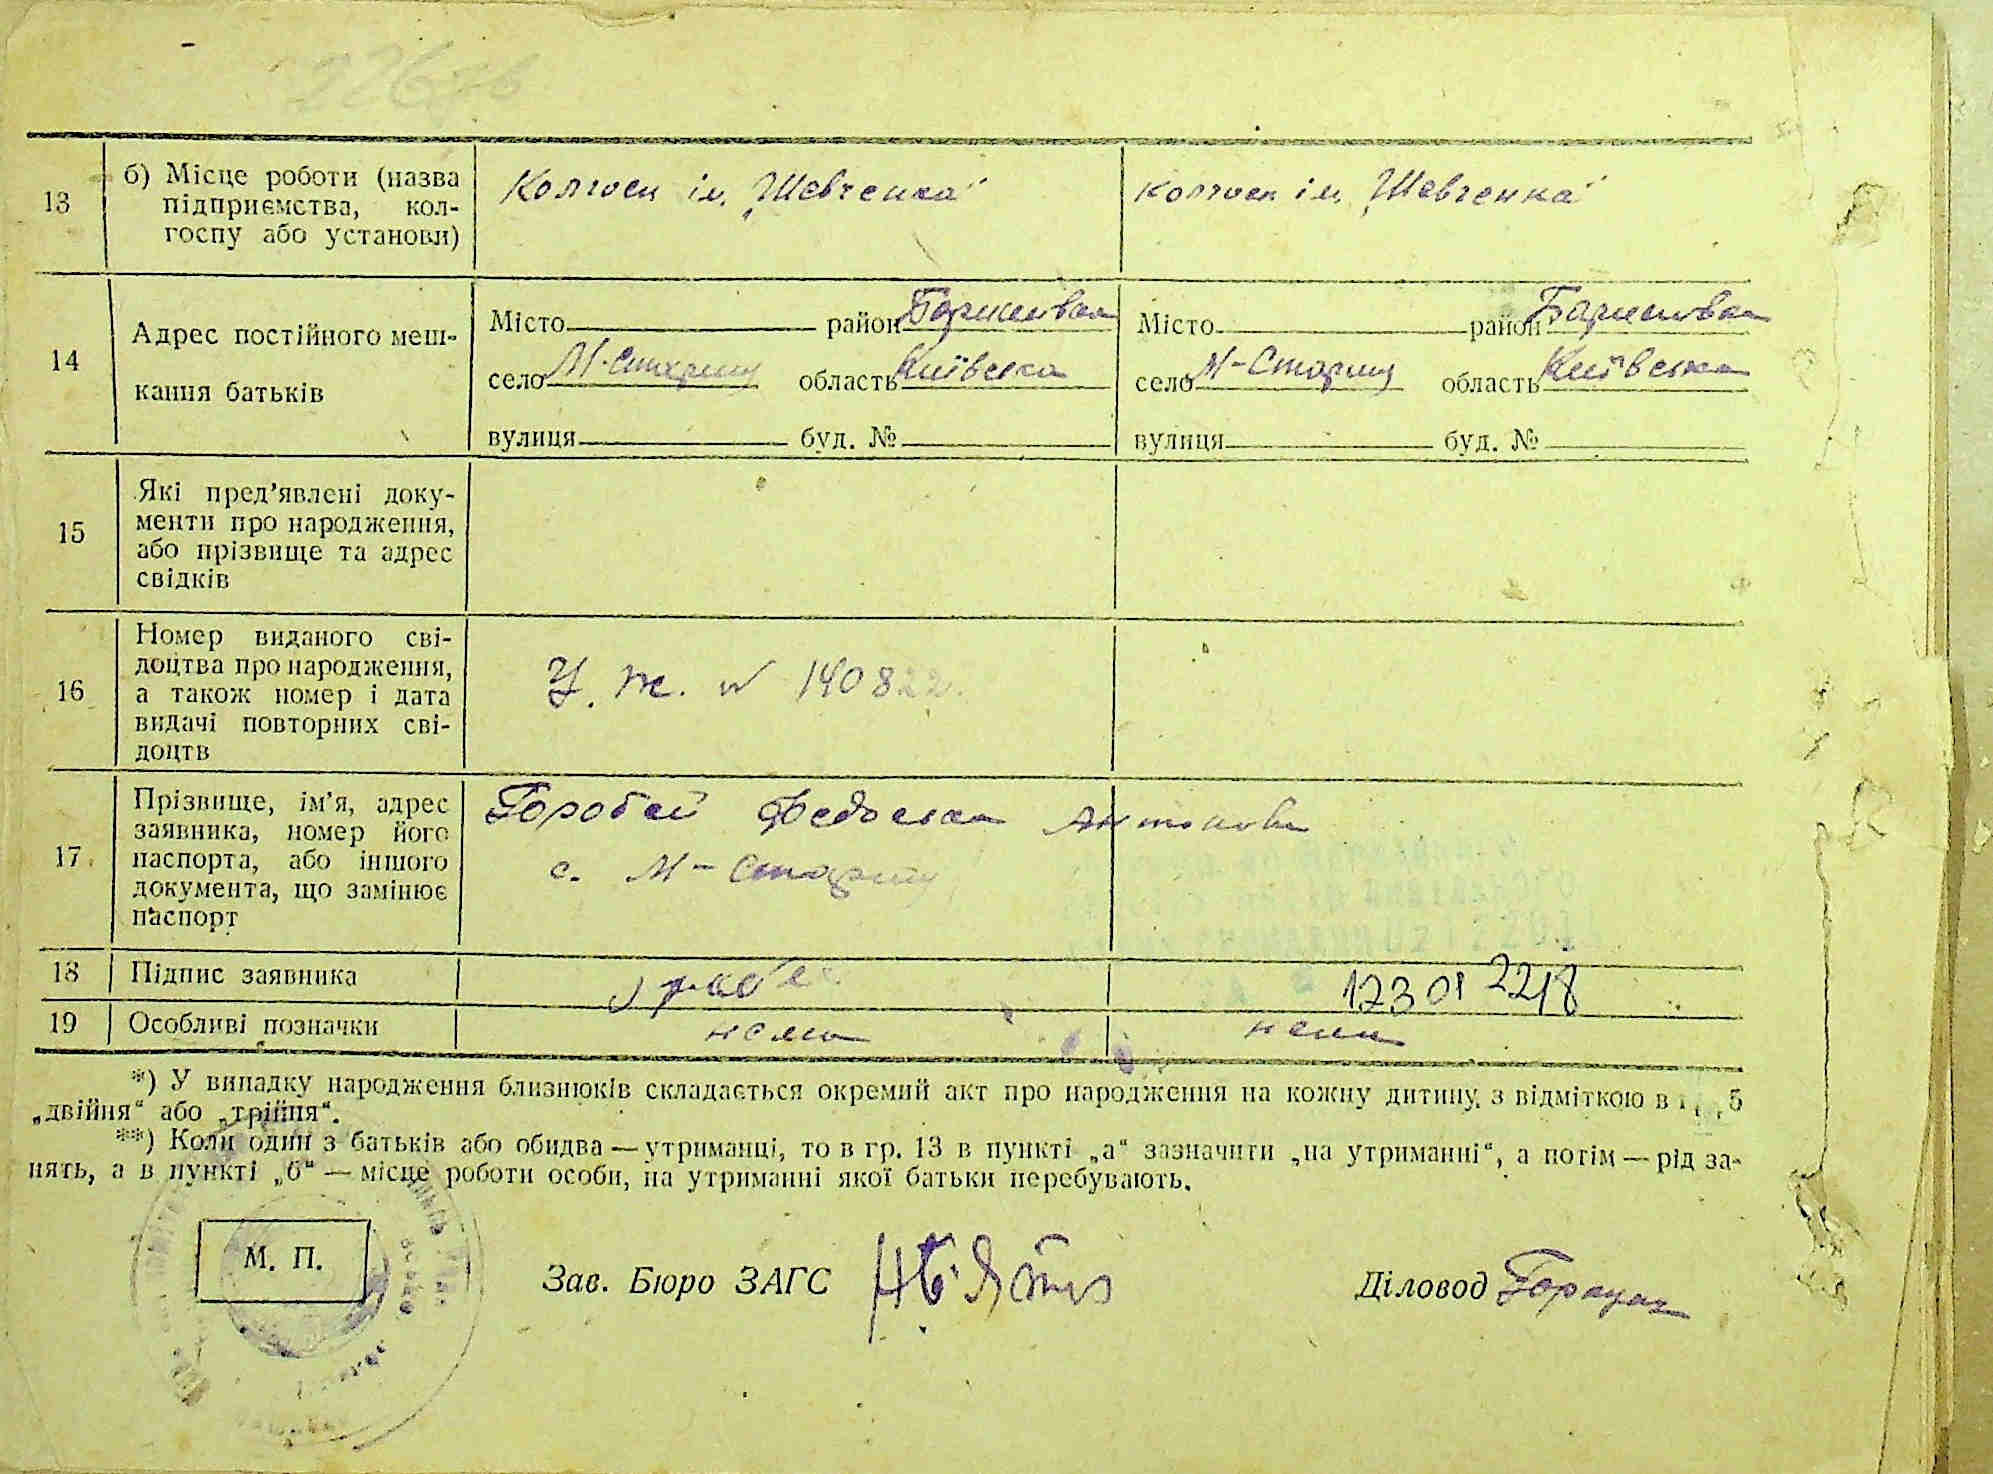 226зв
13
б) Місце роботи (назва
підприємства, кол-
госпу або установи)
Колгосп ім. „Шевченка"
колгосп ім. „Шевченка"
14
Адрес постійного меш-
кання батьків
Місто район Баришівка
село М-Стариця область Київська
вулиця буд. №
Місто район Баришівка
село М-Стариця область Київська
вулиця буд. №
15
Які пред’явлені доку-
менти про народження,
або прізвище та адрес
свідків
16
Номер виданого сві-
доцтва про народження,
а також номер і дата
видачі повторних сві-
доцтв
У. Ж. № 140822.
17.
Прізвище, ім’я, адрес
заявника, номер його
паспорта, або іншого
документа, що замінює
паспорт
Горобей Федоська Антоновн
с. М-Стариця
18
Підпис заявника
12301 2218
19
Особливі позначки
нема
нема
*) У випадку народження близнюків складається окремий акт про народження на кожну дитину, з відміткою в 5
„двійня“ або „трійня“.
**) Коли один з батьків або обидва — утриманці, то в гр. 13 в пункті „а“ зазначити „на утриманні“, а потім — рід за-
нять, а в пункті „б“ — місце роботи особи, на утриманні якої батьки перебувають.
М. П.
Зав. Бюро ЗАГС
Діловод